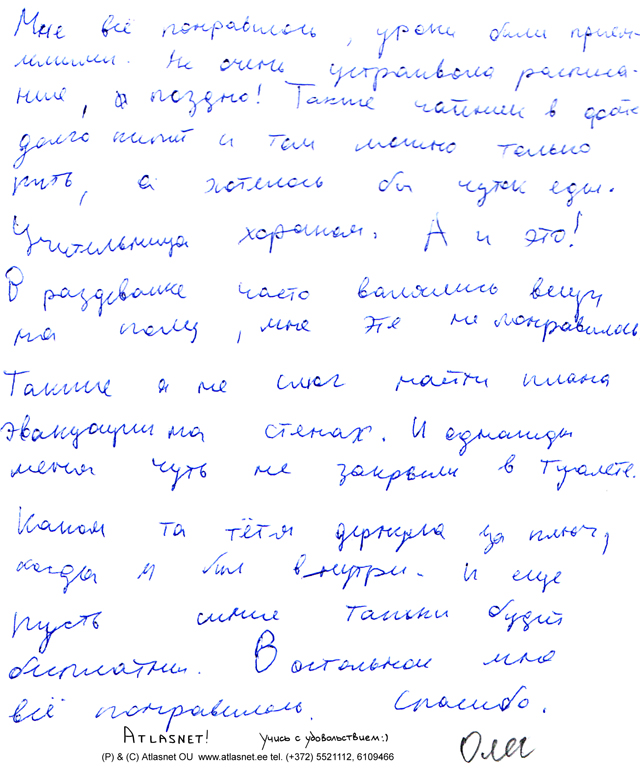 Мне всё понравилось, уроки были прием-
лимыми. Не очень устраивала расписа-
ние, поздно! Также чайник в
долго кипит и там можно только
пить, а хотелось бы чутк еды.
Учительница хорошая. А и это!
В раздевалке часто валялись вещи
на полу, мне это не понравилось
Также я не смог найти плана
эвакуации на стенах. И однажды
меня чуть не закрыли в туалете.
Какая та тётя дернула за ключ,
когда я был внутри. И еще
пусть синие тапки будут
бесплатны. В остальном мне
всё понравилось. Спасибо.
ATLASNET! Учись с удовольствием:)
Олег
(P) & (C) Atlasnet OU www.atlasnet.ee tel. (+372) 5521112, 6109466